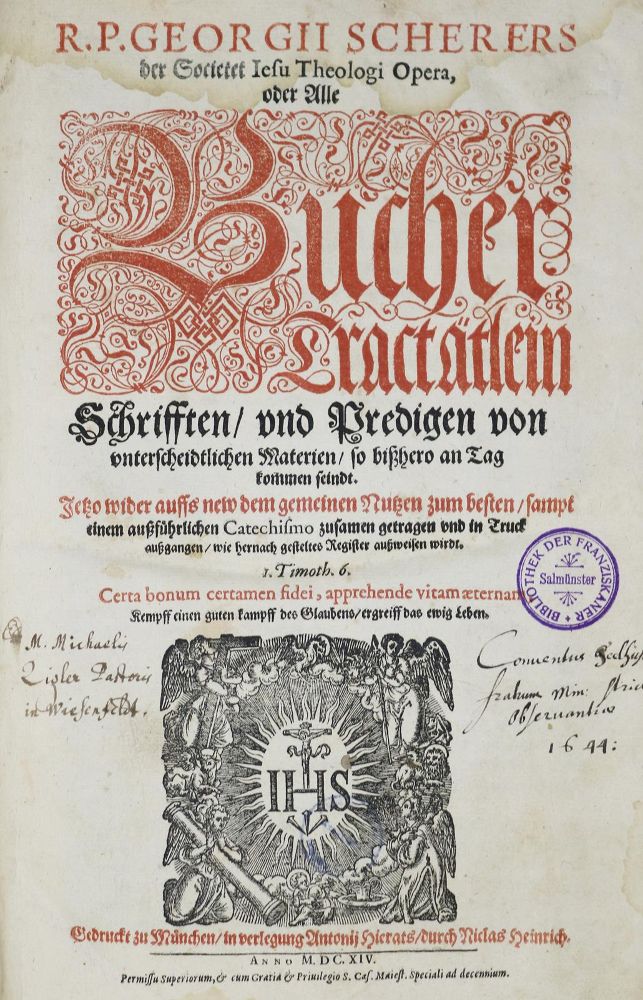 R.P. GEORGII SCHERERS
der Societet Iesu Theologi Opera,
oder Alle
Bücher
Tractätlein
Schrifften/ vnd Predigen von
vnterscheidtlichen Materien/ so bißhero an Tag
kommen seindt.
Jetzo wider auffs new dem gemeinen Nutzen zum besten/ sampt
einem außführlichen Catechismo zusamen getragen vnd in Truck
außgangen/ wie hernach gesteltes Register außweisen wirdt.
1. Timoth. 6.
Certa bonum certamen fidei, apprehende vitam æternam
Kempff einen guten kampff des Glaubens/ ergreiff das ewig Leben.
BIBLIOTHEK DER FRANZISKANER
Salmünster
M. Michaelis
Zigler Pastoris
in Wiesenfeldt.
Conventus
fratrum Min: stric
Observantiae
1644:
IHS
Gedruckt zu München/ in verlegung Antonij Hierats/ durch Niclas Heinrich.
ANNO M. DC. XIV.
Permissu Superiorum, & cum Gratia & Priuilegio S. Cæs. Maiest. Speciali ad decennium.